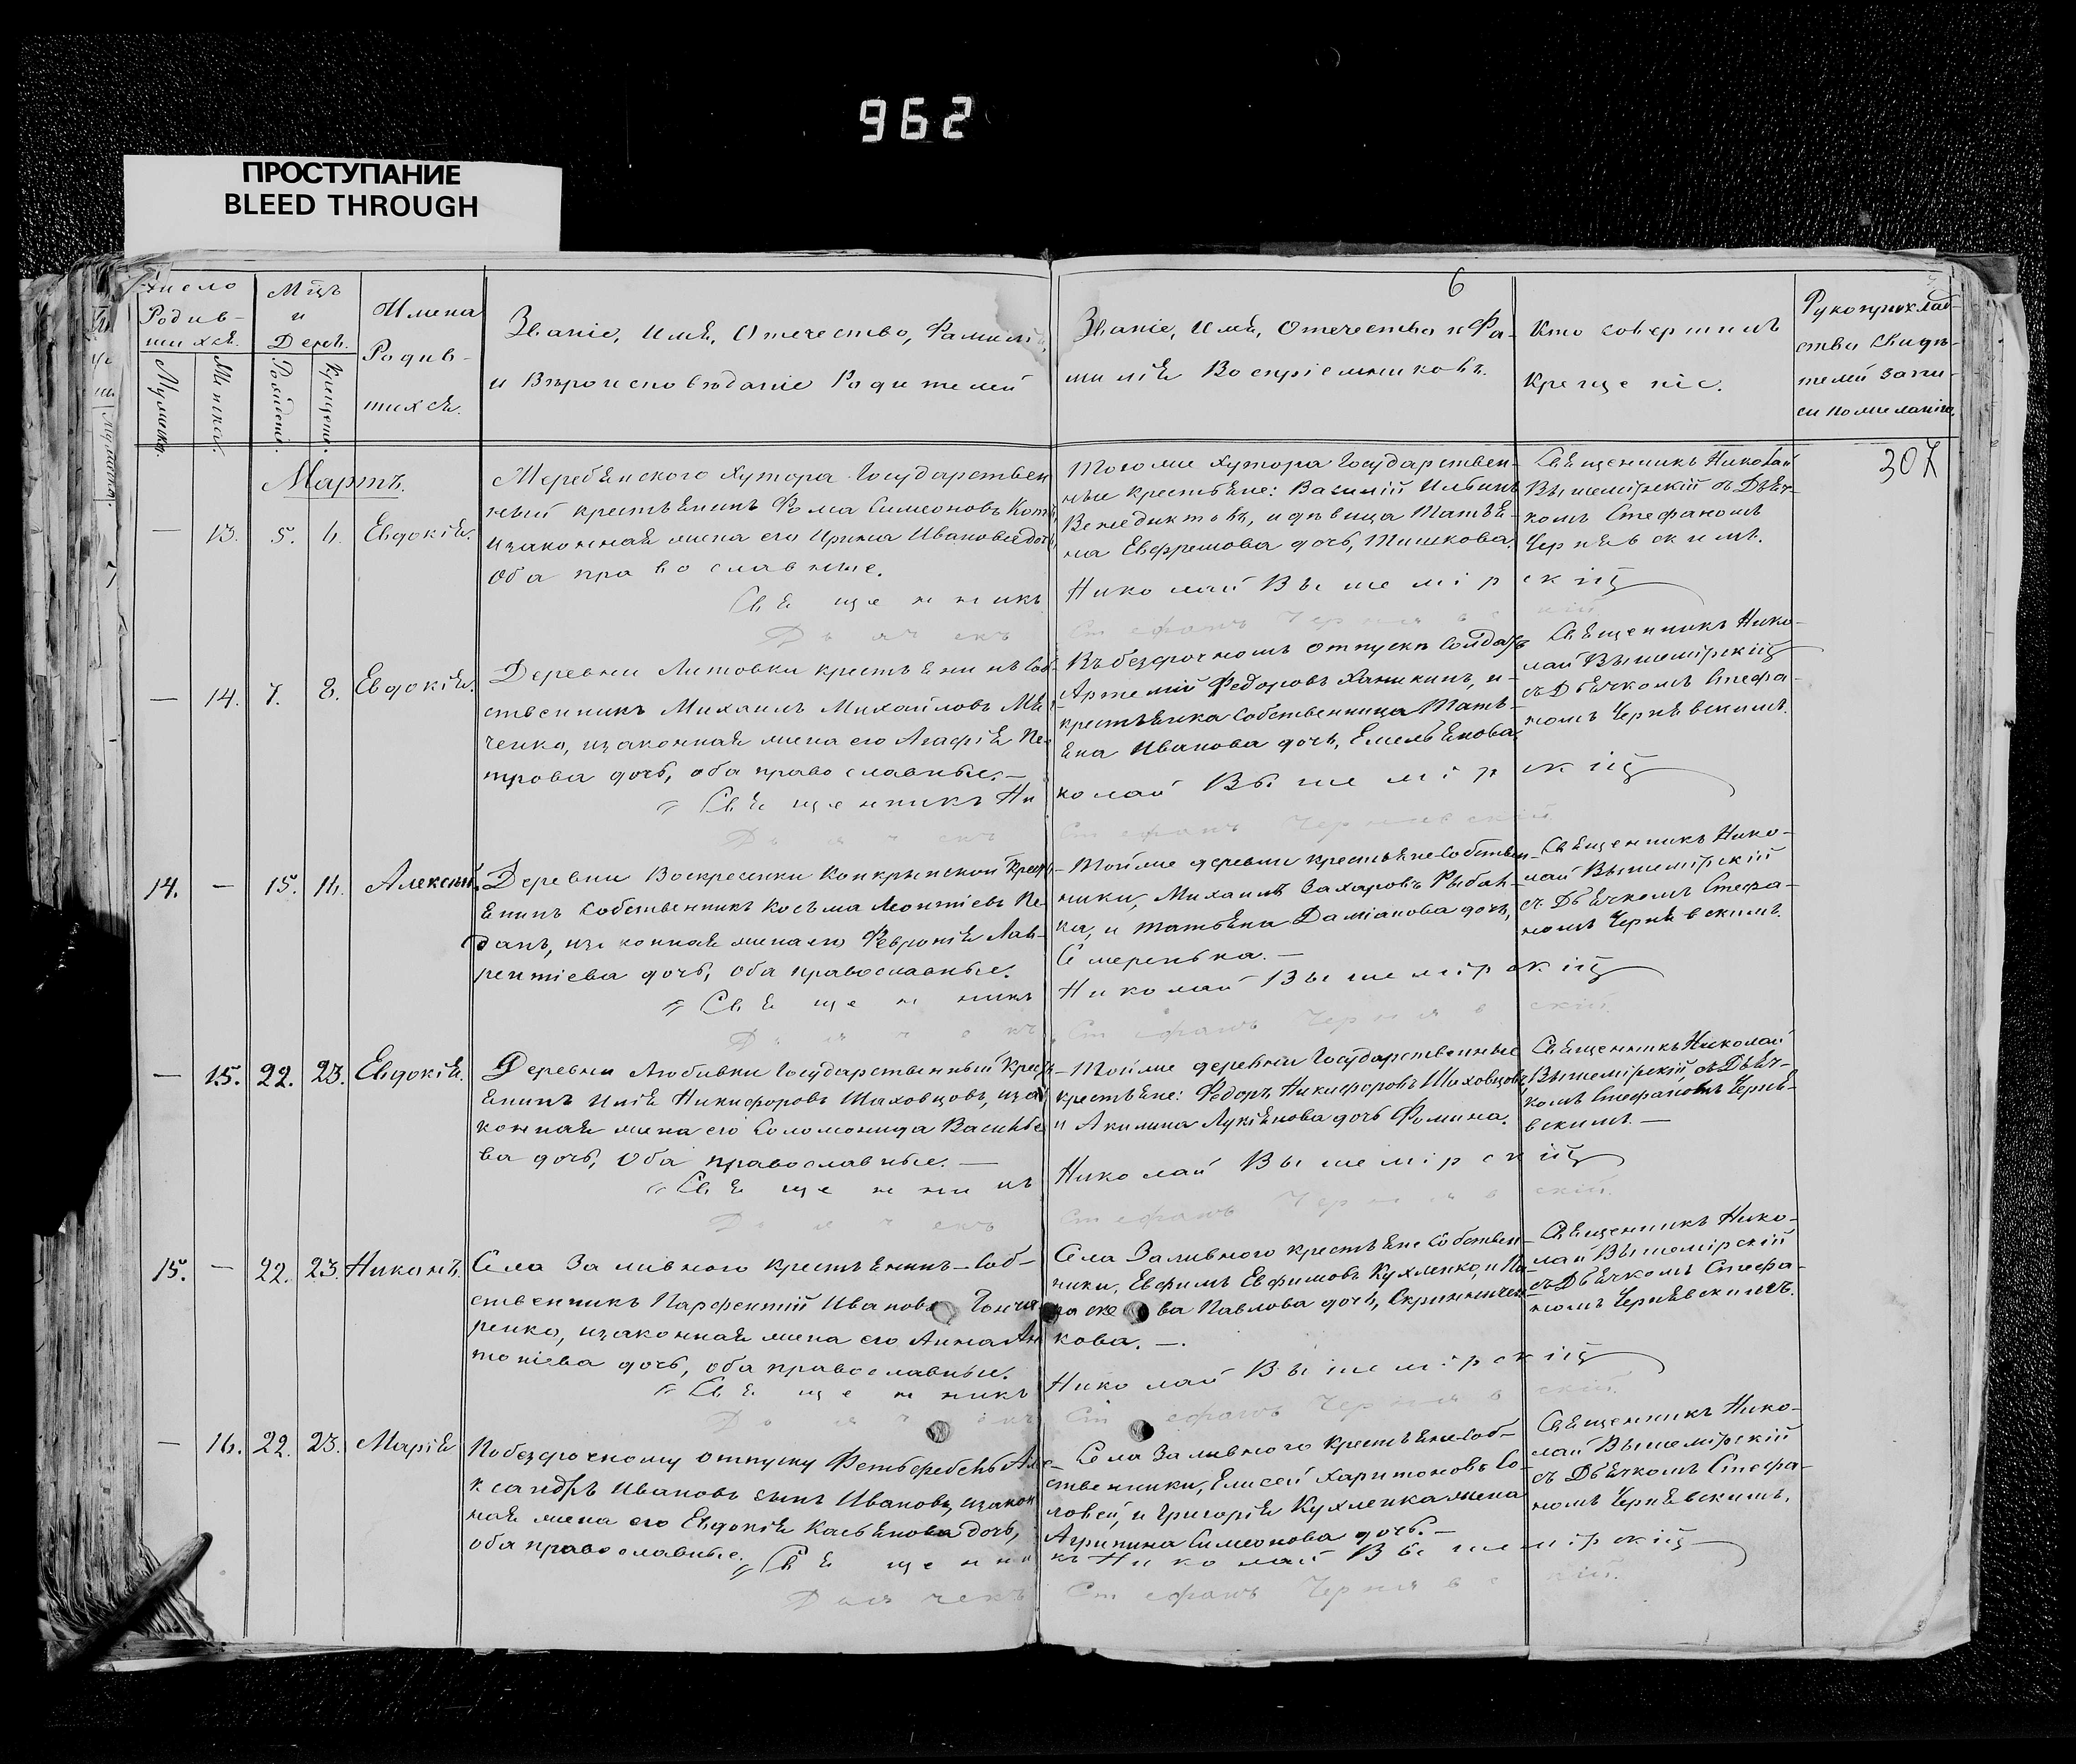 962
ПРОСТУПАНИЕ
BLEED THROUGH
6
Число
Родив-
шихся.
Мужеска.
Женска.
Мцъ
и
День.
Рожденія.
Крещенія.
Имена
Родив-
шихся.
Званіе, Имя, Отечество, Фамилія,
и Вѣроисповѣданіе Родителей
Званіе, Имя, Отечество и Фа-
милія Воспріемниковъ.
Кто совершилъ
крещеніе.
Рукоприклад-
ство Свидѣ-
телей запи-
си по желанію.
307
Мартъ.
— 13. 5. 6. Евдокія.
хутора Государствен
ный крестьянинъ Фома Симеоновъ
и законная жена его Ирина Иванова дочь,
Оба православные.
Тогоже хутора Государствен-
ные крестьяне: Василій Ильинъ
Венедиктовъ, и дѣвица Татья-
на Ефремова дочь, Тишкова.
Священникъ Николай
Вышемірскій съ Дьяч-
комъ Стефаномъ
Чернявскимъ.
Священникъ Николай Вышемірскій
Дьячекъ Стефанъ Чернявскій
— 14. 7. 8. Евдокія.
Деревни Литовки крестьянинъ Соб-
ственникъ Михаилъ Михайловъ
ченко, и законная жена его Агафія Пе-
трова дочь, оба православные. —
Въ безсрочномъ отпуску Солдатъ
Артемій Федоровъ Ханикинъ, и
крестьянка собственница Тать-
яна Иванова дочь, Емельянова.
Священникъ Нико-
лай Вышемірскій
съ Дьячкомъ Стефа-
номъ Чернявскимъ.
Священникъ Николай Вышемірскій
Дьячекъ Стефанъ Чернявскій
14. — 15. 16. Алексѣй.
Деревни Воскресенки крест-
янинъ Собственникъ Косьма Леонтіевъ Ре-
данъ, и законная жена его Февронія Лав-
рентіева дочь, Оба православные.
Тойже деревни крестьяне Собствен-
ники, Михаилъ Захаровъ Рыбал-
ка, и Татьяна Даміанова дочь,
Семеренька. —
Священникъ Нико-
лай Вышемірскій
съ Дьячкомъ Стефа-
номъ Чернявскимъ.
Священникъ Николай Вышемірскій
Дьячекъ Стефанъ Чернявскій.
— 15. 22. 23. Евдокія.
Деревни Любивки Государственный крест-
янинъ Илія Никифоровъ Шаховцовъ, и за
конная жена его Соломонида Василье
ва дочь, Оба православные. —
Тойже деревни Государственные
крестьяне: Федоръ Никифоровъ Шаховцовъ,
и Акилина Лукіянова дочь Фомина.
Священникъ Николай
Вышемірскій, съ Дьяч-
комъ Стефаномъ Черня-
вскимъ. —
Священникъ Николай Вышемірскій
Дьячекъ Стефанъ Чернявскій.
15. — 22. 23. Никонъ.
Села Заливного крестьянинъ-Соб-
ственникъ Парфентій Ивановъ Гонча
ренко, и законная жена его Анна Ан
тоніева дочь, оба православные.
Села Заливного крестьяне Собствен-
ники, Ефимъ Ефимовъ Кухленко, и Па-
раске ва Павлова дочь, Скринничен-
кова. —.
Священникъ Нико-
лай Вышемірскій
съ Дьячкомъ Стефа-
номъ Чернявскимъ.
Священникъ Николай Вышемірскій
Дьячекъ Стефанъ Чернявскій.
— 16. 22. 23. Марія
По безсрочному отпуску Фельдфебель Але-
ксандръ Ивановъ сынъ Ивановъ, и закон
ная жена его Евдокія Касьянова дочь,
оба православные.
Села Заливного крестьяне-соб-
ственники, Елисей Харитоновъ Со-
ловей, и Григорія Кухленка жена
Агрипина Симеонова дочь. —
Священникъ Нико-
лай Вышемірскій
съ Дьячкомъ Стефа-
номъ Чернявскимъ.
Священникъ Николай Вышемірскій
Дьячекъ Стефанъ Чернявскій.